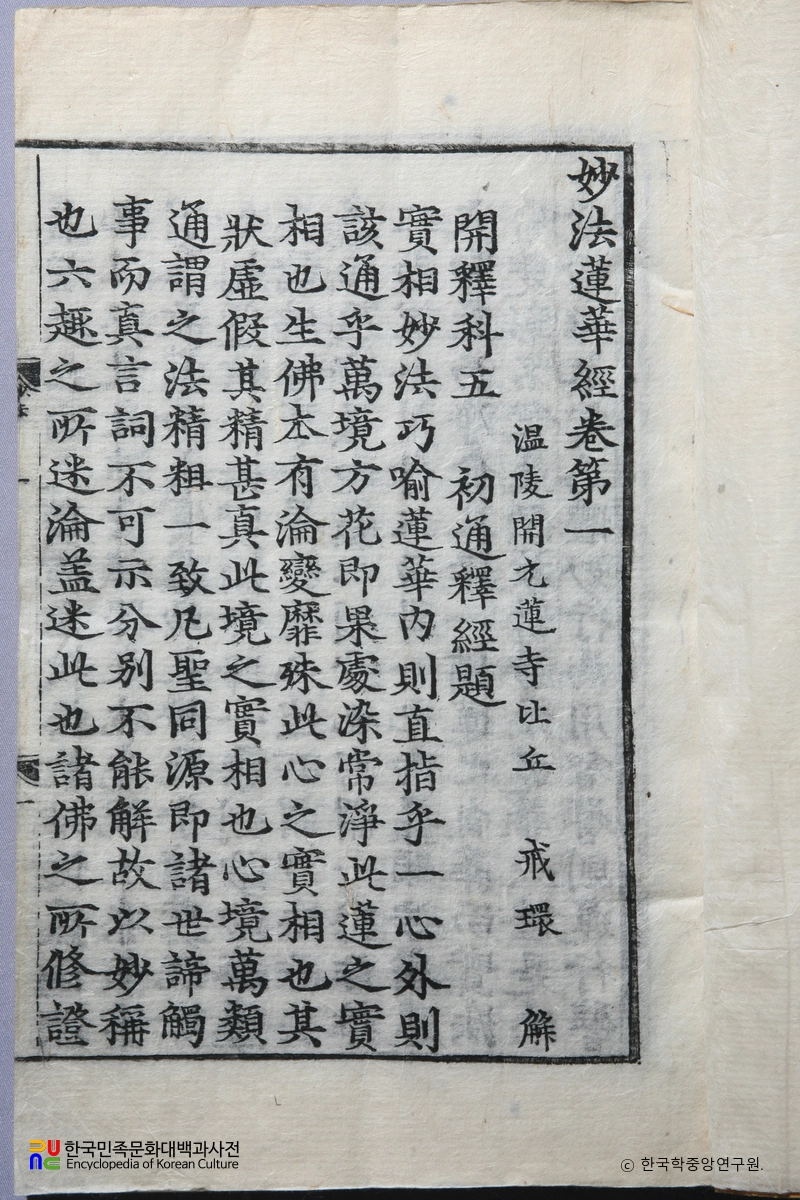 妙法蓮華經卷第一
温陵開元蓮寺比丘 戒環 解
開釋科五 初通釋經題
實相妙法巧喻蓮華内則直指乎一心外則
該通乎萬境方花即果處染常淨此蓮之實
相也生佛本有淪變靡殊此心之實相也其
狀虛假其精甚真此境之實相也心境萬類
通謂之法精粗一致凡聖同源即諸世諦觸
事而真言詞不可示分别不能解故以妙稱
也六趣之所迷淪盖迷此也諸佛之所修證
한국민족문화대백과사전
Encyclopedia of Korean Culture
© 한국학중앙연구원.